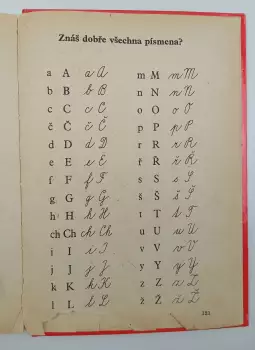 Znáš dobře všechna písmena?
a A a A
b B b B
c C c C
č Č č Č
d D d D
e E e E
f F f F
g G g G
h H h H
ch Ch ch Ch
i I i I
j J j J
k K k K
l L l L
m M m M
n N n N
o O o O
p P p P
r R r R
ř Ř ř Ř
s S s S
š Š š Š
t T t T
u U u U
v V v V
y Y y Y
z Z z Z
ž Ž ž Ž